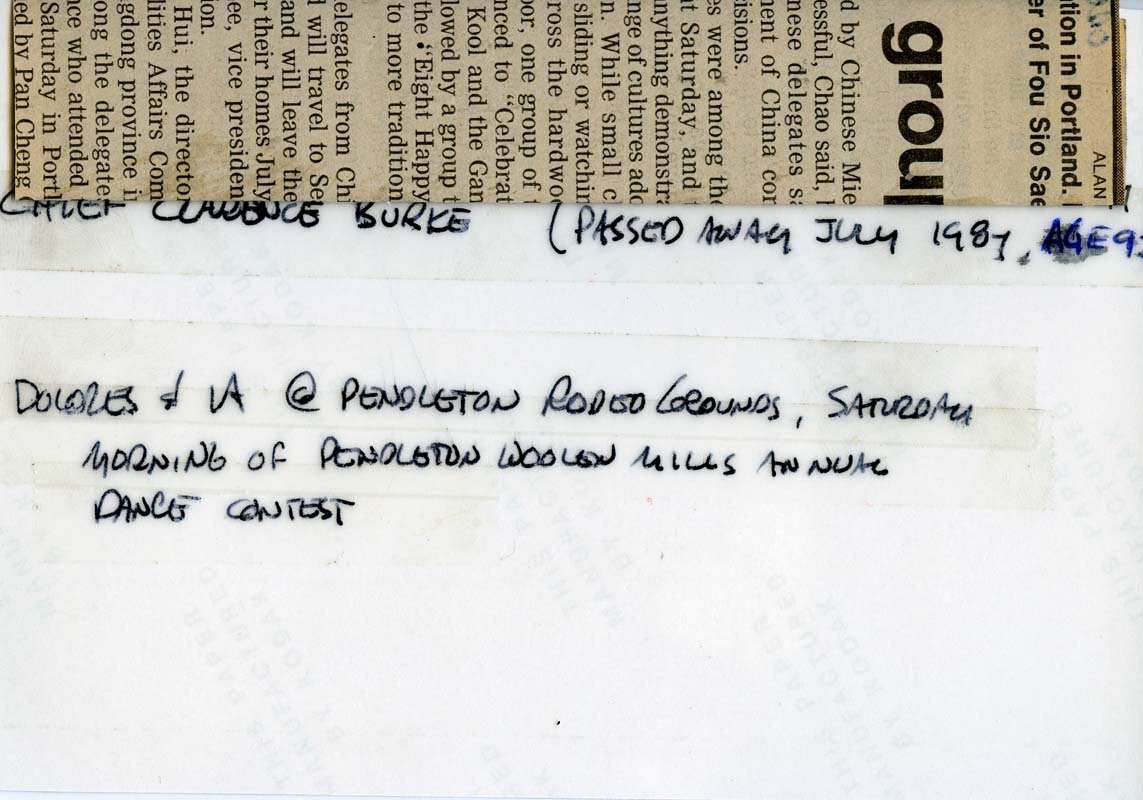 ALAN
tion in Portland.
er of Fou Sio Sae
grou
d by Chinese Mie
essful, Chao said,
nese delegates sa
ment of China con
cisions.
es were among the
t Saturday, and
nything demonstra
nge of cultures add
n. While small c
sliding or watchin
ross the hardwoo
or, one group of t
nced to “Celebrat
Kool and the Gan
lowed by a group t
the “Eight Happy
to more tradition
elegates from Chi
d will travel to Se
and will leave the
r their homes July
ee, vice presiden
ion.
Hui, the director
lities Affairs Com
gdong province i
ong the delegate
nce who attended
Saturday in Portl
ed by Pan Cheng
CHIEF CLARENCE BURKE (PASSED AWAY JULY 1987, AGE 9
DOLORES & VA @ PENDLETON RODEO GROUNDS, SATURDAY
MORNING OF PENDLETON WOOLEN MILLS ANNUAL
DANCE CONTEST
THIS PAPER
MANUFACTURED
BY KODAK